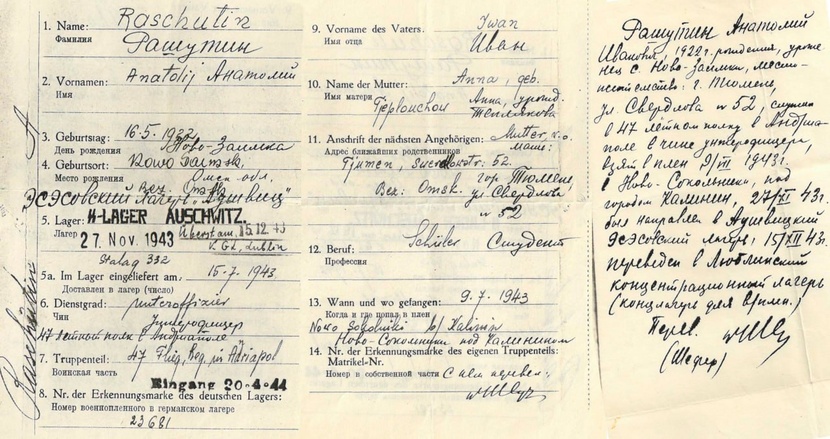 1. Name: Raschutin
Фамилия Рашутин
2. Vornamen: Anatolij Анатолий
Имя
3. Geburtstag: 16·5. 1922
День рождения Ново-Заимка
4. Geburtsort:
Место рождения Омск. обл.
Bez. Omsk
Эсэсовский лагерь "Аушвиц"
5. Lager: SS-LAGER AUSCHWITZ.
Лагерь 27. Nov. 1943 Überst. am 15.12.43
V. GL, Lublin
Stalag 332
5a. Im Lager eingeliefert am, 15·7. 1943.
Доставлен в лагерь (число)
6. Dienstgrad: unteroffizier
Чин Унтерофицер
47 летной полк в
7. Truppenteil: 47 Flug, Reg. in Adriapol
Воинская часть
Eingang 20·4·44
8. Nr. der Erkennungsmarke des deutschen Lagers:
Номер военнопленного в германском лагере
23681
Raschutin
9. Vorname des Vaters: Iwan
Имя отца Иван
10. Name der Mutter: Anna, geb.
Имя матери Teplouchou Анна, урожд.
Теплякова
11. Anschrift der nächsten Angehörigen: Mutter
Адрес ближайших родственников мать:
Tjumen, 52. гор. Тюмень
Bez: Omsk. ул Свердлова
№ 52
12. Beruf: Schüler Студент
Профессия
13. Wann und wo gefangen: 9.7. 1943
Когда и где попал в плен
Ново-Сокольники под Калинином
14. Nr. der Erkennungsmarke des eigenen Truppenteils:
Matrikel-Nr.
Номер в собственной части С нем. перевел:
Рашутин Анатолий
Иванович, 1922 г. рождения, уроже
нец с. Ново-Заимки, место-
жительство: г. Тюмень,
ул. Свердлова № 52, служил
в 47 летном полку в
поле в чине унтерофицера,
взят в плен 9/VII 1943 г.
в Ново-Сокольники, под
городом Калинин, 27/XI 43 г.
был направлен в Аушвицкий
Эсэсовский лагерь; 15/XII 43 г.
переведен в Люблинский
концентрационный лагерь
(концлагерь для в/плен.)
Перев.
(Шефер)